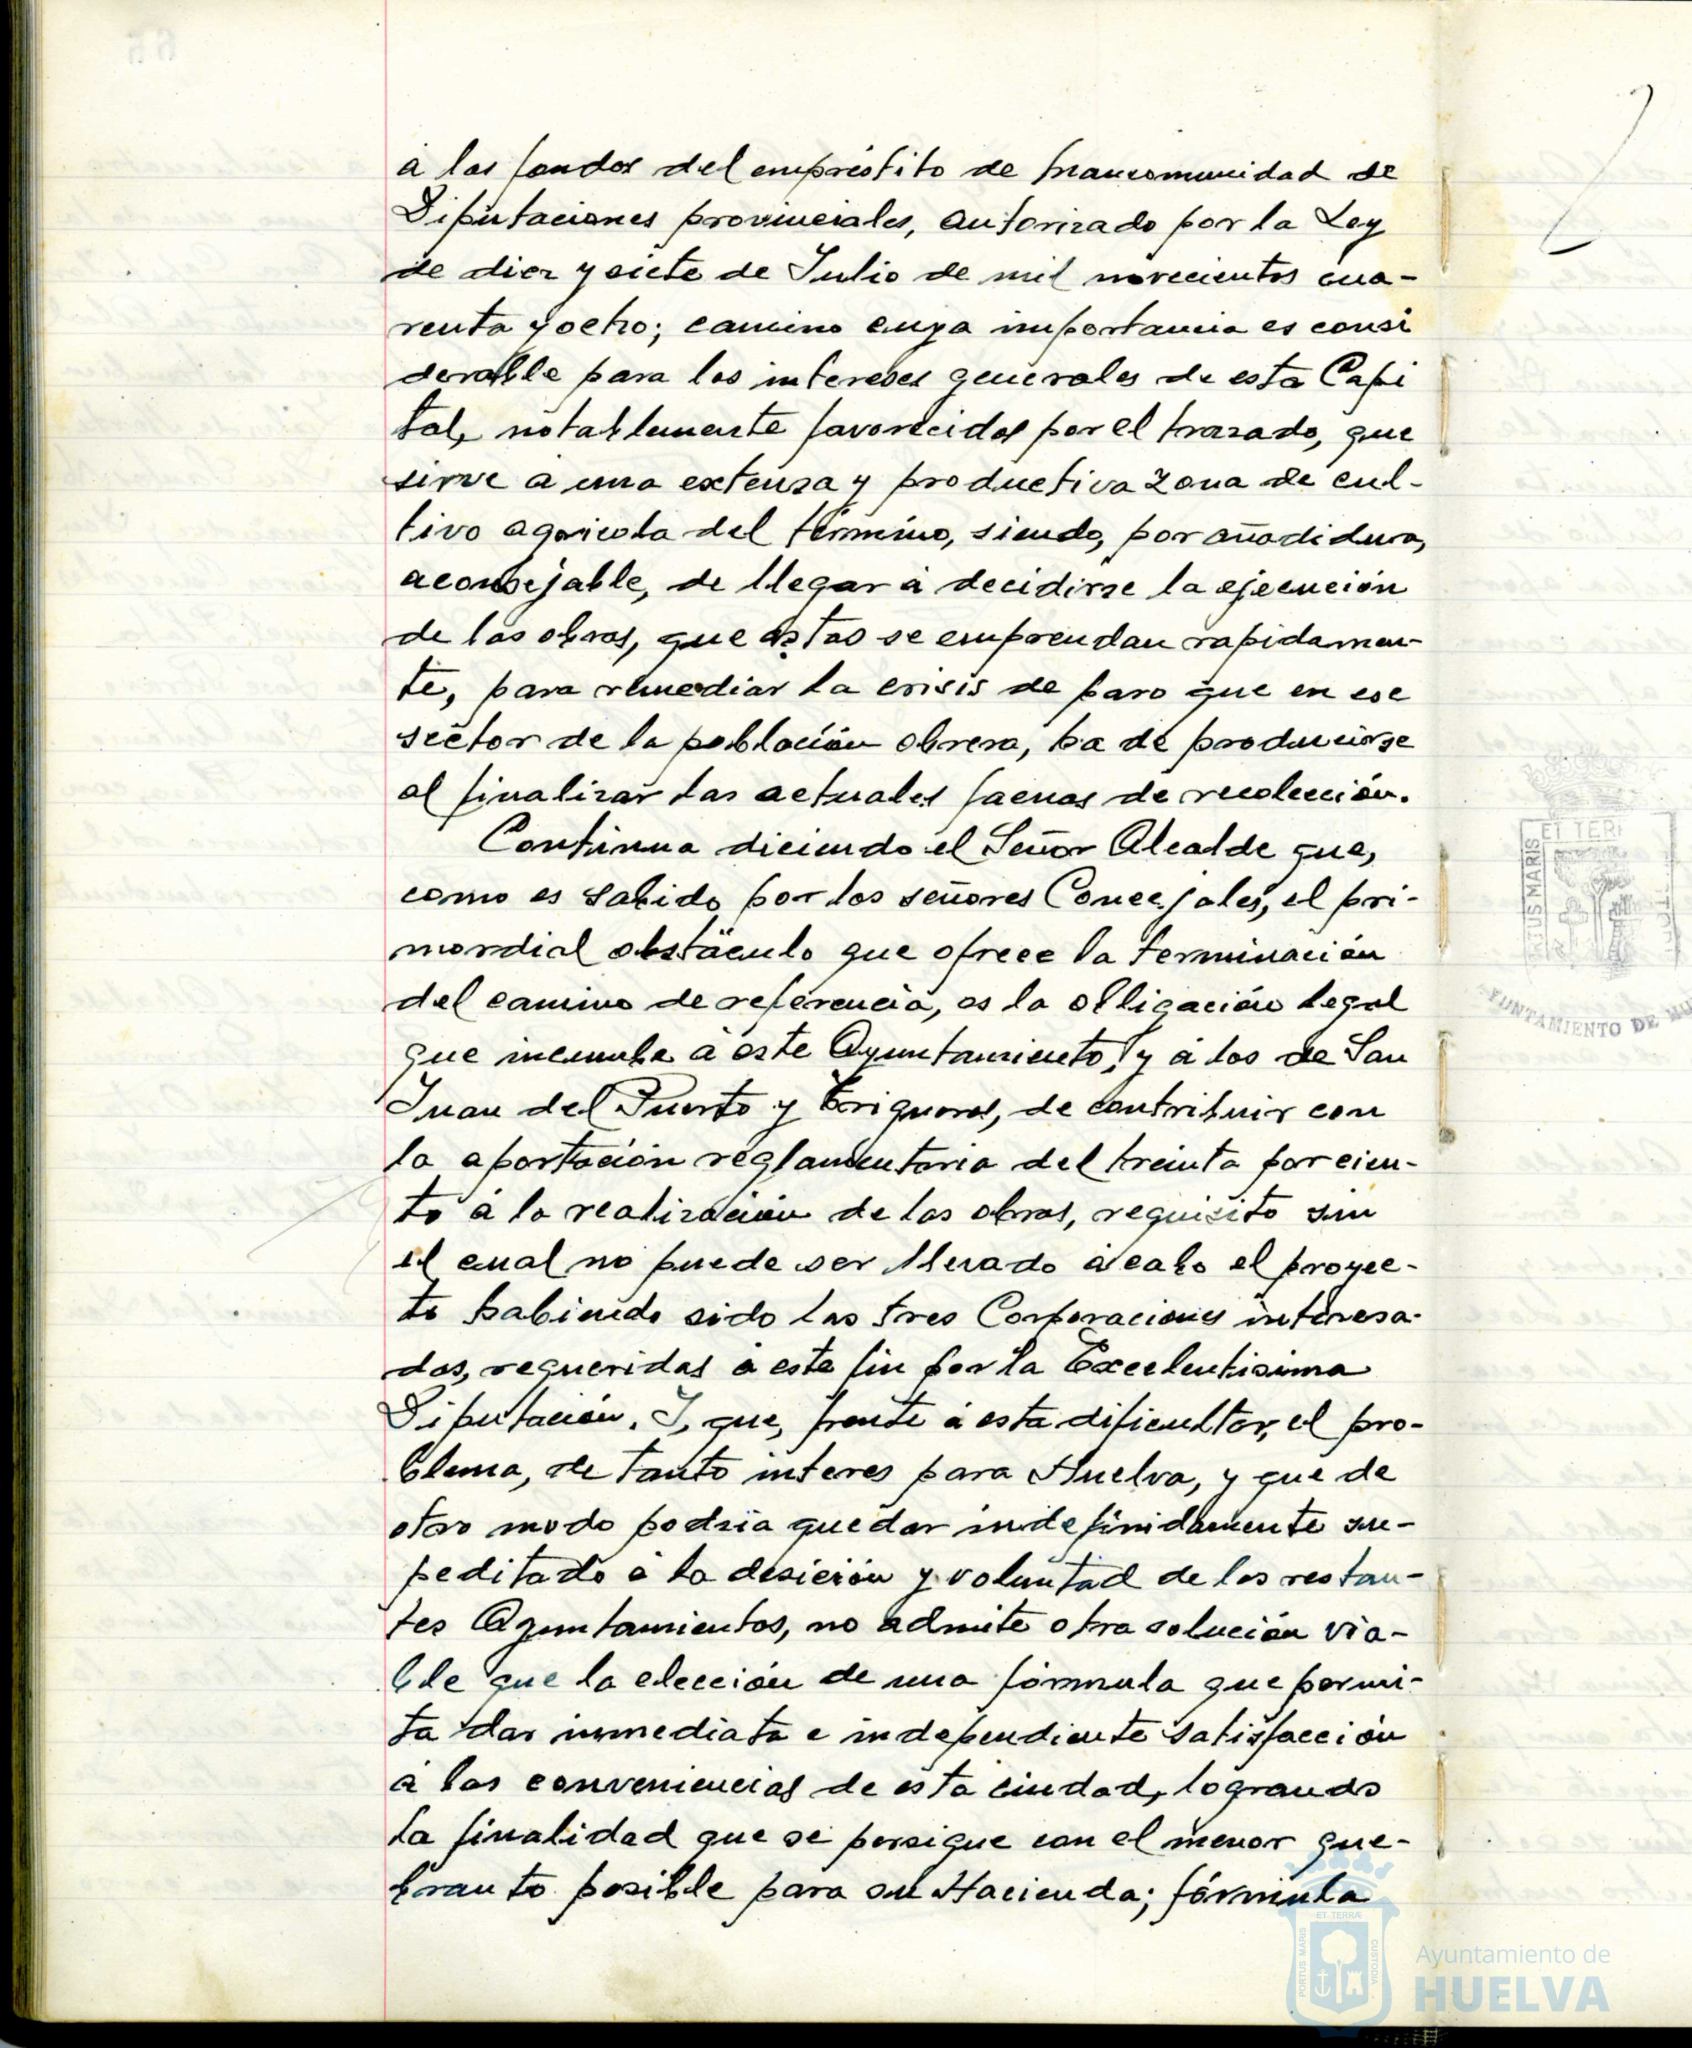 á los fondos del empréstito de mancomunidad de
Diputaciones provinciales, autorizado por la Ley
de diez y siete de Julio de mil novecientos cua-
renta y ocho; camino cuya importancia es consi
derable para los intereses generales de esta Capi
tal, notablemente favorecidos por el trazado, que
sirve á una extensa y productiva zona de cul-
tivo agricola del término, siendo, por añadidura,
aconsejable, de llegar á decidirse la ejecución
de las obras, que estas se emprendan rapidamen-
te, para remediar la crisis de paro que en ese
sector de la población obrera, ha de producirse
al finalizar las actuales faenas de recolección.
Continua diciendo el Señor Alcalde que,
como es sabido por los señores Concejales, el pri-
mordial obstáculo que ofrece la terminación
del camino de referencia, es la obligación legal
que incumbe á este Ayuntamiento, y á los de San
Juan del Puerto y Trigueros, de contribuir con
la aportación reglamentaria del treinta por cien-
to á la realización de las obras, requisito sin
el cual no puede ser llevado á cabo el proyec-
to habiendo sido las tres Corporaciones interesa-
das, requeridas á este fin por la Excelentisima
Diputación. Y, que, frente á esta dificultar, el pro-
blema, de tanto interes para Huelva, y que de
otro modo podria quedar indefinidamente su-
peditado á la desición y voluntad de los restan-
tes Ayuntamientos, no admite otra solución via-
ble que la elección de una fórmula que permi-
ta dar inmediata e independiente satisfacción
á las conveniencias de esta ciudad, logrando
la finalidad que se persigue con el menor que-
branto posible para su Hacienda; fórmula
ET TERR
PORTUS MARIS
AYUNTAMIENTO DE HU
ET TERRÆ
PORTUS MARIS
CUSTODIA
Ayuntamiento de
HUELVA